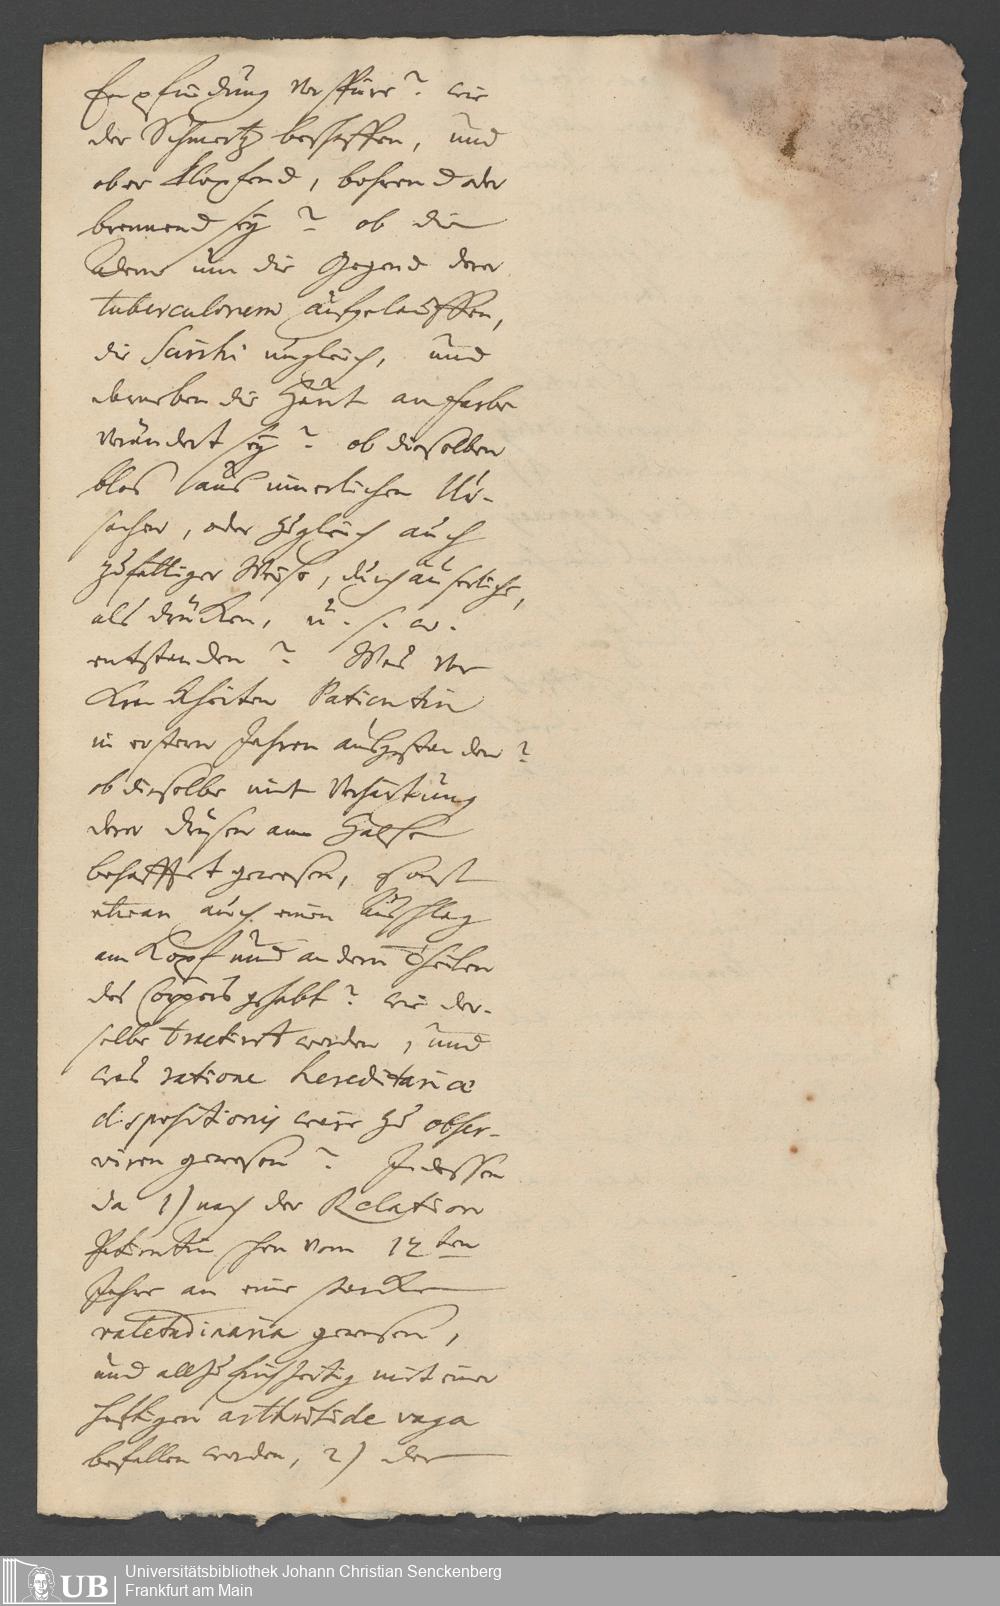 Empfindung verspüre? wie
der Schmertz beschaffen, und
ob er klopfend, bohrend oder
brennend seÿ? ob die
Adern um die Gegend derer
tuberculorum aufgelauffen,
die Scirrhi ungleich, und
darneben die Haut an Farbe
verändert seÿ? ob dieselben
blos aus innerlichen Ur-
sachen, oder zugleich auch
zufälliger Weise, durch äuserliche,
als drücken, u. s. w.
entstanden? Was vor
Kranckheiten Patientin
in erstern Jahren ausgestanden?
ob dieselbe mit Verhärtung
derer Drüsen am Halse
behafftet gewesen, sonst
etwan auch einen Ausschlag
am Kopf und andern Theilen
des Corpers gehabt? wie der-
selbe tractirt worden, und
was ratione hereditariae
dispositionis weiter zu obser-
viren gewesen? Indessen
da 1) nach der Relation
Patientin schon vom 12ten
Jahre an eine starcke
valetudinaria gewesen,
und allzufrühzeitig mit einer
hefftigen arthritide vaga
befallen worden, 2) der
Universitätsbibliothek Johann Christian Senckenberg
Frankfurt am Main
UB